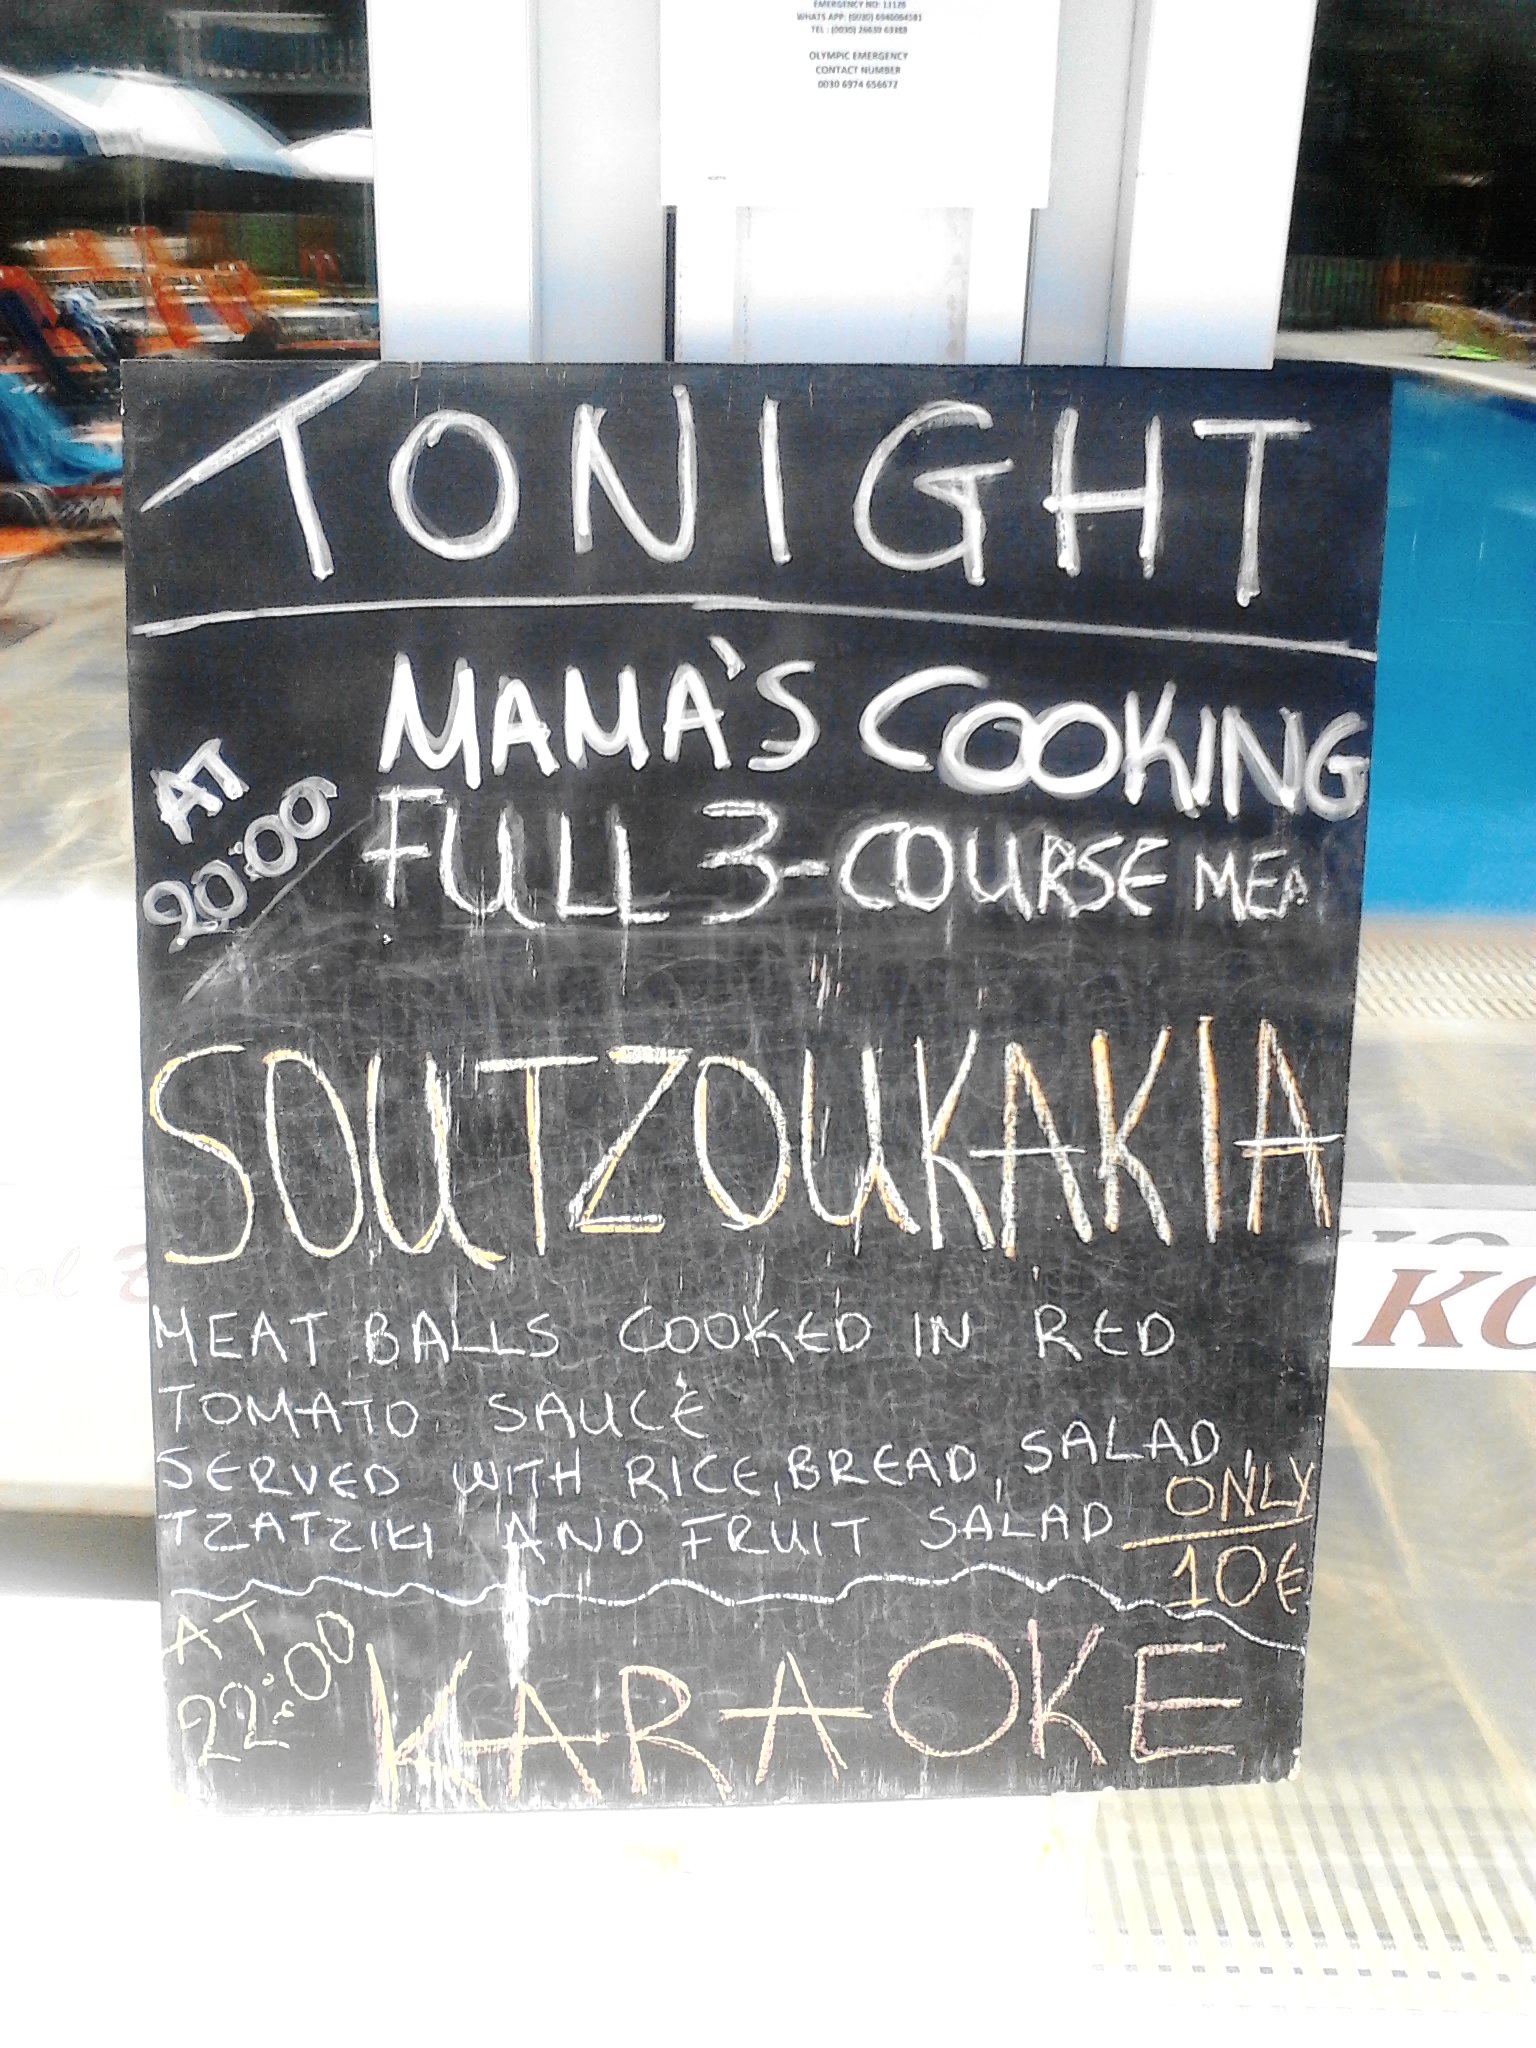 EMERGENCY NO: 11128
WHATS APP: (0030) 6946064581
TEL : (0030) 26630 63388
OLYMPIC EMERGENCY
CONTACT NUMBER
0030 6974 656672
TONIGHT
AT
20:00
MAMA'S COOKING
FULL 3-COURSE MEA
SOUTZOUKAKIA
MEAT BALLS COOKED IN RED
TOMATO SAUCE
SERVED WITH RICE, BREAD, SALAD,
TZATZIKI AND FRUIT SALAD
ONLY
10€
AT
22:00
KARAOKE
ool B
KO